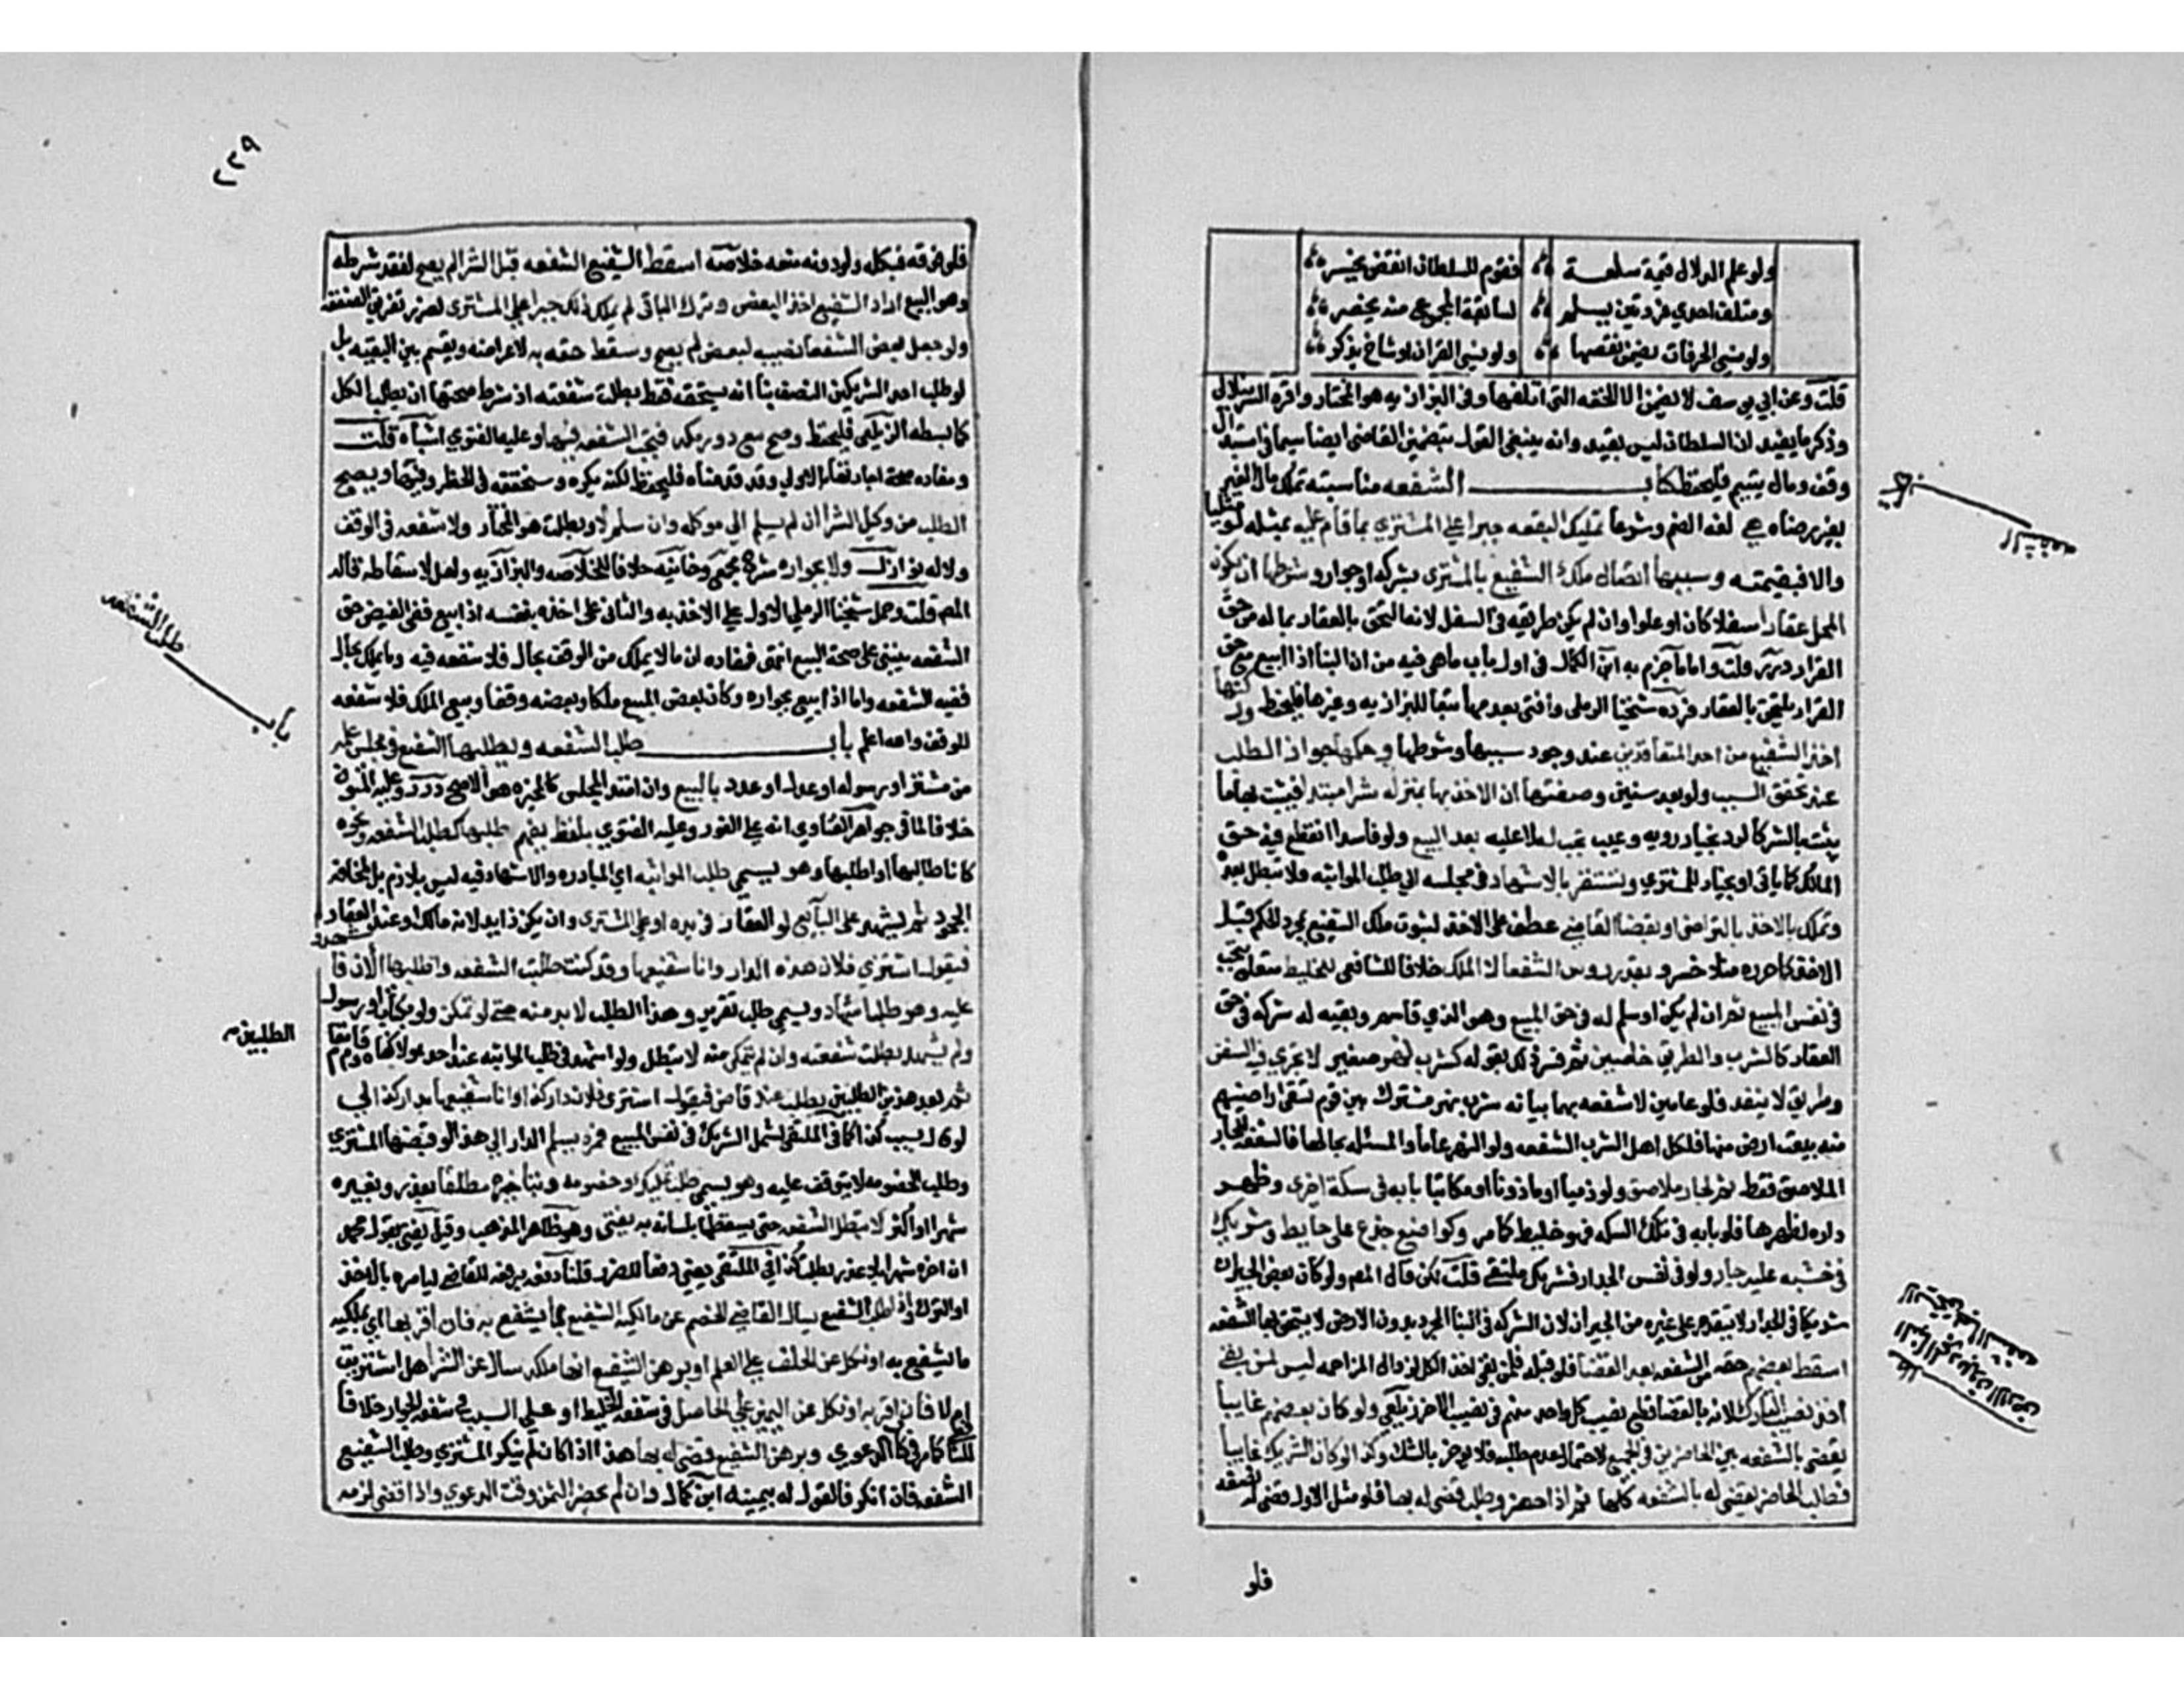 ولو علم الدلال قيمة سلعة فقوم للسلطان انقض يخسر
ومتلف احدي فردتين يسلم لسائقة المجموع منه يحضر
ولو نسي الحرفات يضمن نقصها ولو نسي القران او شاخ يذكر
قلت وعن ابي يوسف لا يضمن الا للخفه التي اتلفها وفي البزازيه هو المختار واقره الشرنبلالي
وذكر ما يفيد ان السلطان ليس بقيد وانه ينبغي القول بتضمين القاضي ايضا سيما في استبدال
وقف ومال يتيم فليحفظ كتاب الشفعه مناسبته تملك مال الغير
بغير رضاه هي لغة الضم وشرعا تمليك البقعه جبرا علي المشتري بما قام عليه بمثله لو مثليا
والا فبقيمته وسببها اتصال ملك الشفيع بالمشترى بشركه او جوار وشرطها ان يكون
المحل عقارا سفلا كان او علوا وان لم يكن طريقه في السفل لانه التحق بالعقار بما له من حق
القرار درر قلت واما ما جزم به ابن الكمال في اول باب ما هي فيه من ان البنا اذا ابيع مع حق
القرار يلتحق بالعقار فرده شيخنا الرملي وافتى بعدمها تبعا للبزازيه وغيرها فليحفظ وركنها
اخذ الشفيع من احد المتعاقدين عند وجود سببها وشرطها وحكمها جواز الطلب
عند تحقق السبب ولو بعد سنين وصفتها ان الاخذ بها بمنزلة شرا مبتدا فيثبت بها ما
يثبت بالشرا كالرد بخيار رويه وعيب تجب له لا عليه بعد البيع ولو فاسدا انقطع فيه حق
المالك كما ياتي او بخيار للمشتري وتستقر بالاشهاد في مجلسه اي طلب المواثبه ولا تبطل بعده
وتملك بالاخذ بالتراضي او بقضا القاضي عطف على الاخذ لثبوت ملك الشفيع بمجرد الحكم قبل
الاخذ كما حرره منلا خسرو بقدر روس الشفعا لا الملك خلافا للشافعي للخليط متعلق بتجب
في نفس المبيع ثم ان لم يكن او سلم له في حق المبيع وهو الذي قاسم وبقيه له شركه في حق
العقار كالشرب والطريق خاصين ثم فسر ذلك بقوله كشرب نهر صغير لا تجري فيه السفن
وطريق لا ينفد فلو عامين لا شفعه بهما بيانه شرب نهر مشترك بين قوم تسقى اراضيهم
منه بيعت ارض منها فلكل اهل الشرب الشفعه ولو النهر عاما والمسئله بحالها فالشفعه للجار
الملاصق فقط ثم لجار ملاصق ولو ذميا او ماذونا او مكاتبا بابه في سكة اخرى وظهر
داره لظهرها فلو بابه في تلك السكه فهو خليط كما مر وكواضع جذع على حايط وشريك
في خشبه عليه جار ولو في نفس الجدار فشريك ملتقى قلت لكن قال المص ولو كان بعض الجيران
شريكا في الجدار لا يتقدم على غيره من الجيران لان الشركه في البنا المجرد بدون الارض لا يستحق بها الشفعه
اسقط بعضهم حقه من الشفعه بعد القضا فلو قبله فلمن بقي اخذ الكل لزوال المزاحمه ليس لمن بقي
اخذ نصيب التارك لانه بالقضا قطع نصيب كل واحد منهم في نصيب الاخر زيلعي ولو كان بعضهم غايبا
يقضى بالشفعه بين الحاضرين في الجميع لاحتمال عدم طلبه فلا يوخر بالشك وكذا لو كان الشريك غايبا
فطلب الحاضر يقضى له بالشفعه كلها ثم اذا حضر وطلب قضى له بها فلو مثل الاول قضى له بنصفه
فلو
كتاب
الشفعه
٢٢٩
فلو فوقه فبكله ولو دونه منعه خلاصه اسقط الشفيع الشفعه قبل الشرا لم يصح لفقد شرطه
وهو البيع اراد الشفيع اخذ البعض وترك الباقي لم يملك ذلك جبرا علي المشترى لضرر تفريق الصفقه
ولو جعل بعض الشفعا نصيبه لبعض لم يصح وسقط حقه به لاعراضه ويقسم بين البقيه بل
لو طلب احد الشريكين النصف بنا انه يستحقه فقط بطلت شفعته اذ شرط صحتها ان يطلب الكل
كما بسطه الزيلعي فليحفظ وصح بيع دور مكه فتجب الشفعه فيها وعليه الفتوي اشباه قلت
ومفاده صحة اجارتها بالاولي وقد قدمناه فليحفظ لكنه يكره وسنحققه في الحظر وفيها ويصح
الطلب من وكيل الشرا ان لم يسلم الى موكله وان سلم لا وبطلت هو المختار ولا شفعه في الوقف
ولا له نوازل ولا بجواره شرح مجمع وخانيه خلافا للخلاصه والبزازيه ولعل لا ساقطه قاله
المص قلت وحمل شيخنا الرملي الاول علي الاخذ به والثاني على اخذه بنفسه اذا بيع ففي الفيض حق
الشفعه ينبني على صحة البيع انتهى فمفاده ان ما لا يملك من الوقف بحال فلا شفعه فيه وما يملك بحال
ففيه الشفعه واما اذا بيع بجواره وكان بعض المبيع ملكا وبعضه وقفا وبيع الملك فلا شفعه
للوقف والله اعلم باب طلب الشفعه ويطلبها الشفيع في مجلس علمه
من مشتر او رسوله او عدل او عدد بالبيع وان امتد المجلس كالمخيره هو الاصح درر وعليه المتون
خلافا لما في جواهر الفتاوي انه علي الفور وعليه الفتوي بلفظ يفهم طلبها كطلبت الشفعه ونحوه
كانا طالبها او اطلبها وهو يسمى طلب المواثبه اي المبادره والاشهاد فيه ليس بلازم بل لمخافة
الجحود ثم يشهد على البايع لو العقار في يده او علي المشترى وان يكن ذا يد لانه مالك او عند العقار
فيقول اشترى فلان هذه الدار وانا شفيعها وقد كنت طلبت الشفعه واطلبها الان فاشهدوا
عليه وهو طلب اشهاد ويسمى طلب تقرير وهذا الطلب لا بد منه حتى لو تمكن ولو بكتاب او رسول
ولم يشهد بطلت شفعته وان لم يتمكن منه لا تبطل ولو اشهد في طلب المواثبه عند احد هولا كفاه وقام مقامهما
ثم بعد هذين الطلبين يطلب عند قاض فيقول اشترى فلان دار كذا وانا شفيعها بدار كذا لي
لو قال بسبب كذا كما في الملتقى لشمل الشريك في نفس المبيع فمره يسلم الدار الي هذا لو قبضها المشترى
وطلب الخصومه لا يتوقف عليه وهو يسمى طلب تمليك وخصومه وبتاخيره مطلقا بعذر وبغيره
شهرا او اكثر لا تبطل الشفعه حتى يسقطها بلسانه به يفتى وهو ظاهر المذهب وقيل يفتى بقول محمد
ان اخره شهرا بلا عذر بطلت كذا في الملتقى يعني دفعا للضرر قلنا دفعه برفعه للقاضي ليامره بالاخذ
او الترك واذا طلب الشفيع سال القاضي الخصم عن مالكيه الشفيع لما يشفع به فان اقر بها اي بملكيه
ما يشفع به او نكل عن الحلف علي العلم او برهن الشفيع انها ملكه ساله عن الشرا هل اشتريت
ام لا فان اقر به او نكل عن اليمين علي الحاصل في شفعه الخليط او علي السبب في شفعه الجوار خلافا
للشافعي كما مر في كتاب الدعوي وبرهن الشفيع قضى له بها هذا اذا كان لم ينكر المشترى وطلب الشفيع
الشفعه فان انكر فالقول له بيمينه ابن كمال وان لم يحضر الثمن وقت الدعوي واذا قضى لزمه
باب طلب الشفعه
الطلبين